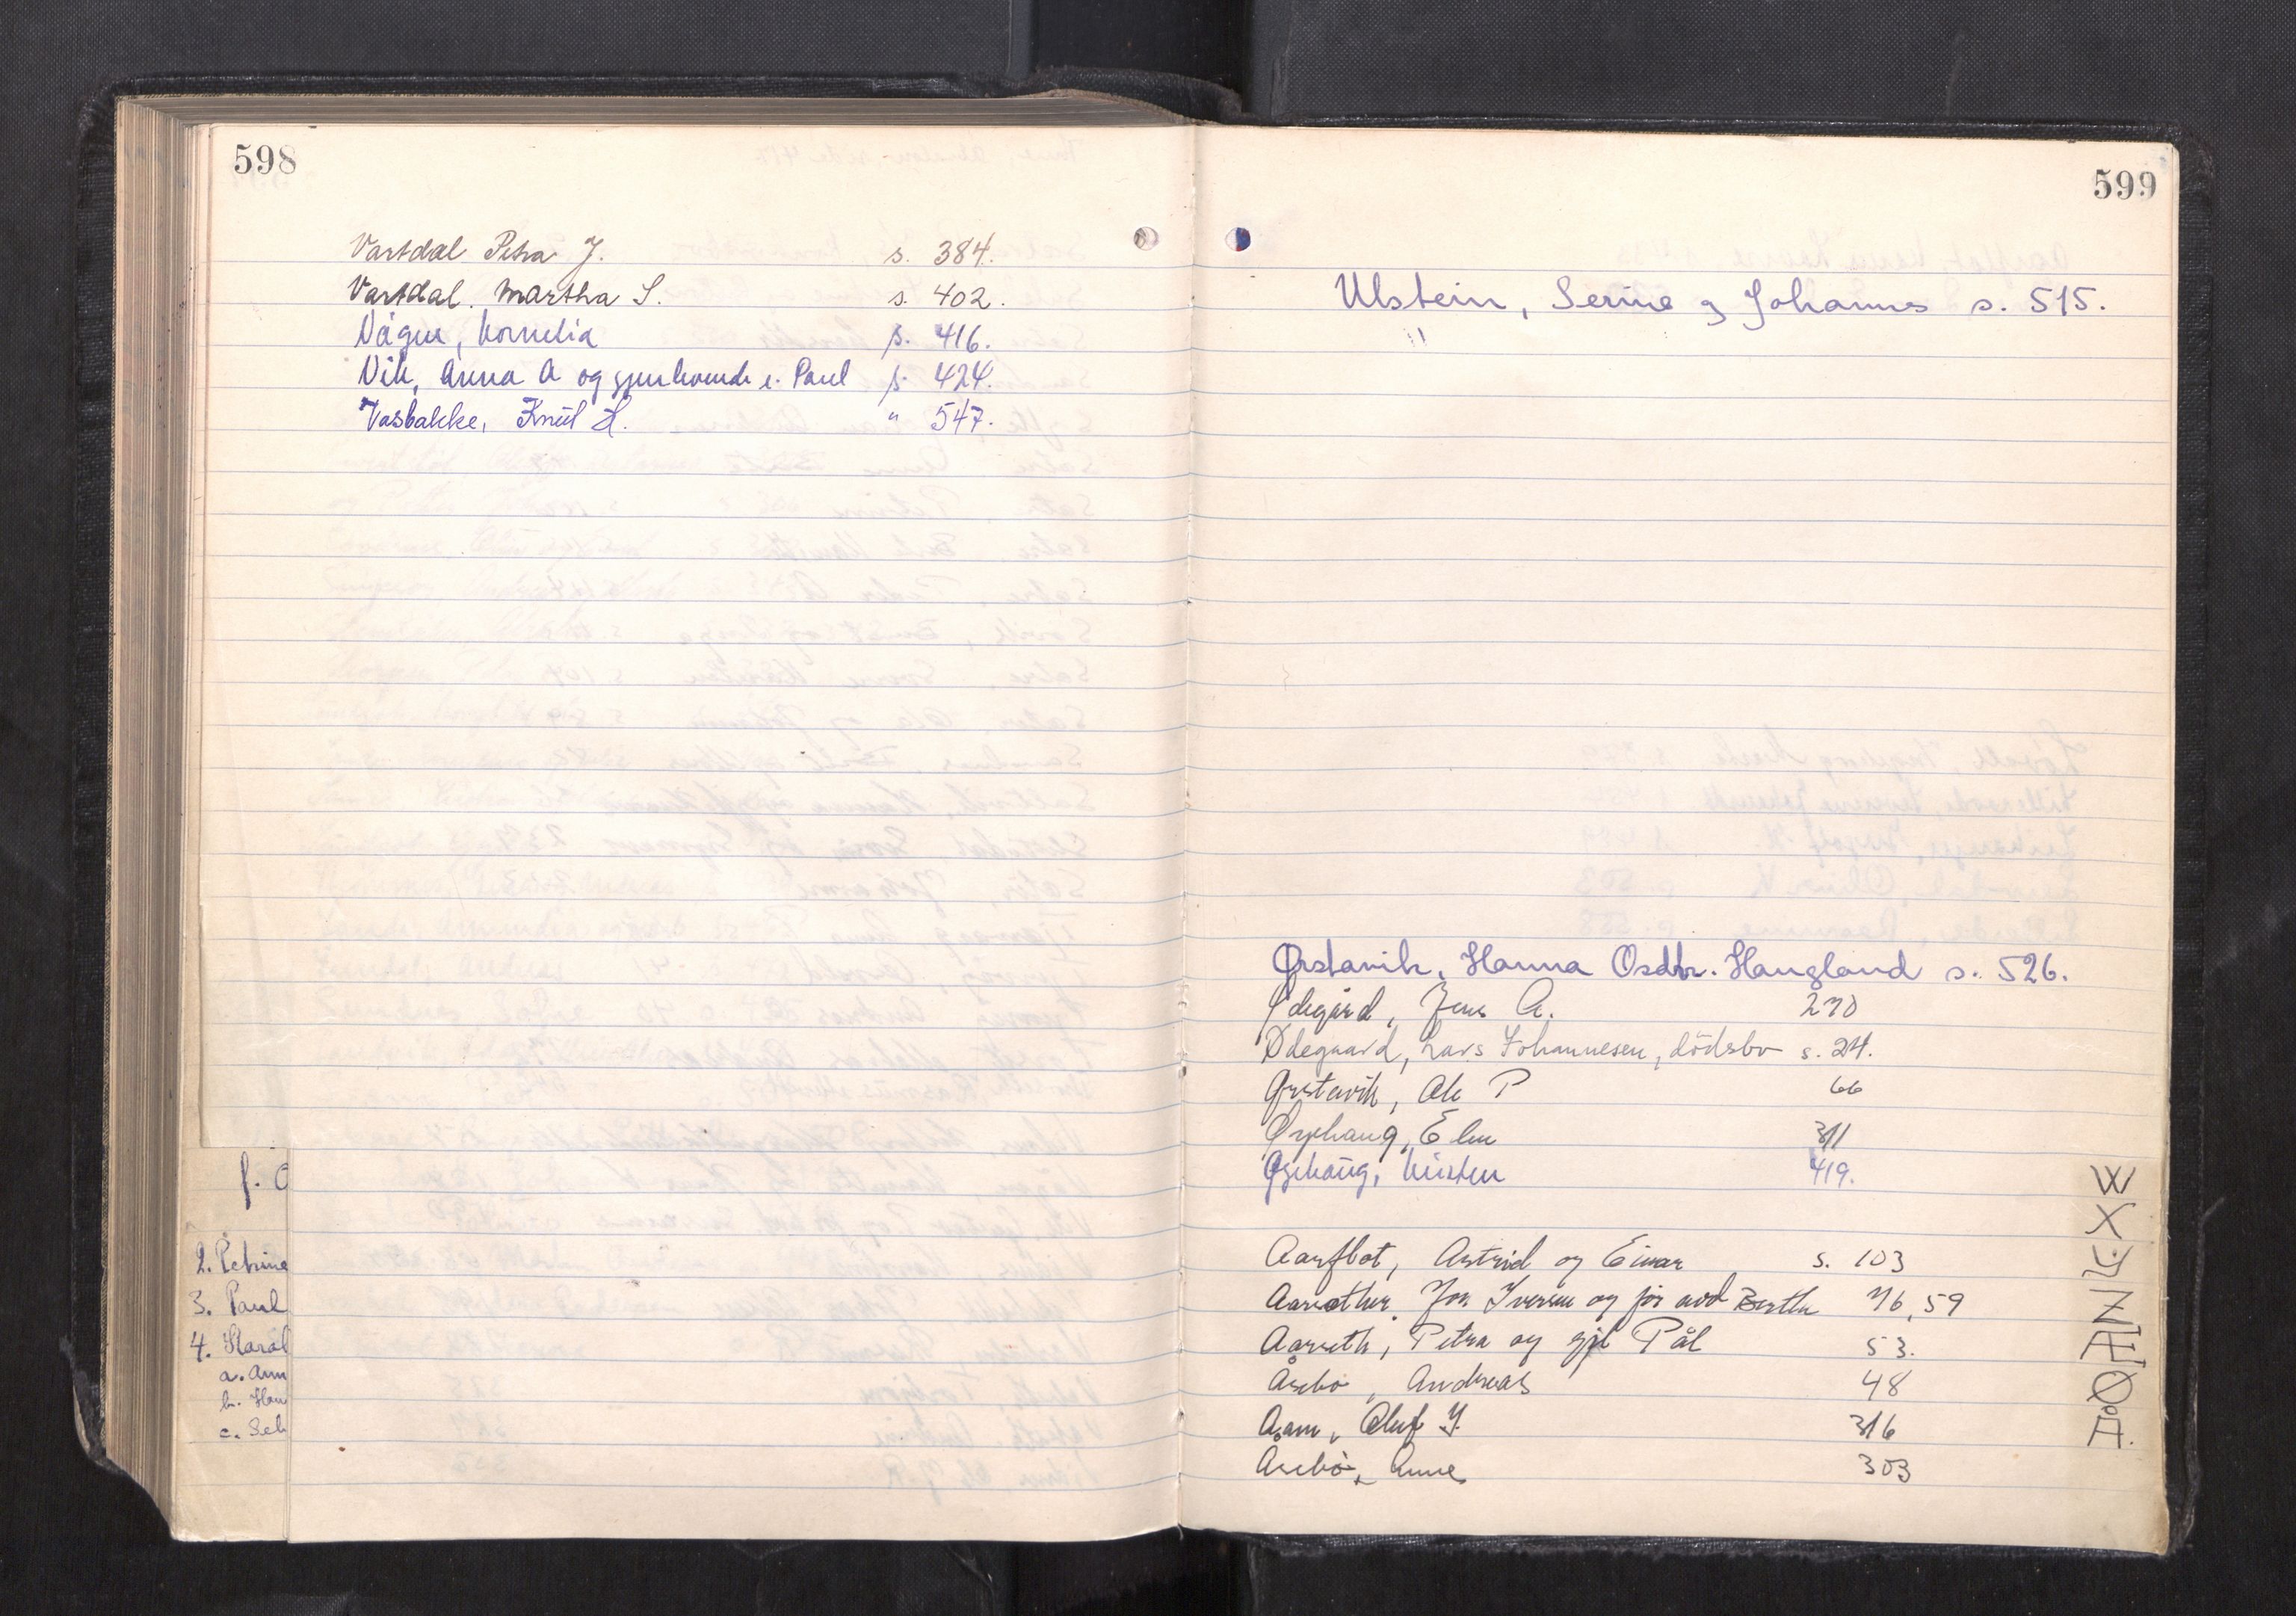 598
Vartdal Petra J. s. 384.
Vartdal. Martha S. s. 402.
Vågen, Kornelia s. 416.
Vik, Anna A og gjenlevende e. Paul s. 424.
Vasbakke, Knut H. " 547.
2. Petrine
3. Paul
4. Karol
a. Ann
b. Han
c. Sel
599
Ulstein, Serine og Johannes s. 515.
Ørstavik, Hanna Osdtr. Haugland s. 526.
Ødegård, Jens A. 270
Ødegaard, Lars Johannesen, dödsbo s. 24.
Ørstavik, Ole P 66
Øyehaug, Elen 311
Øyehaug, Kirsten 419.
Aarflot, Astrid og Einar s. 103
Jon Iversen og Berthe 76, 59
Aarseth, Petra og gjl Pål 53.
Åsebø, Andreas 48
Aam, Oluf Y. 316
Åsebø, Anne 303
W
X
Z
Æ
Ø
Å.